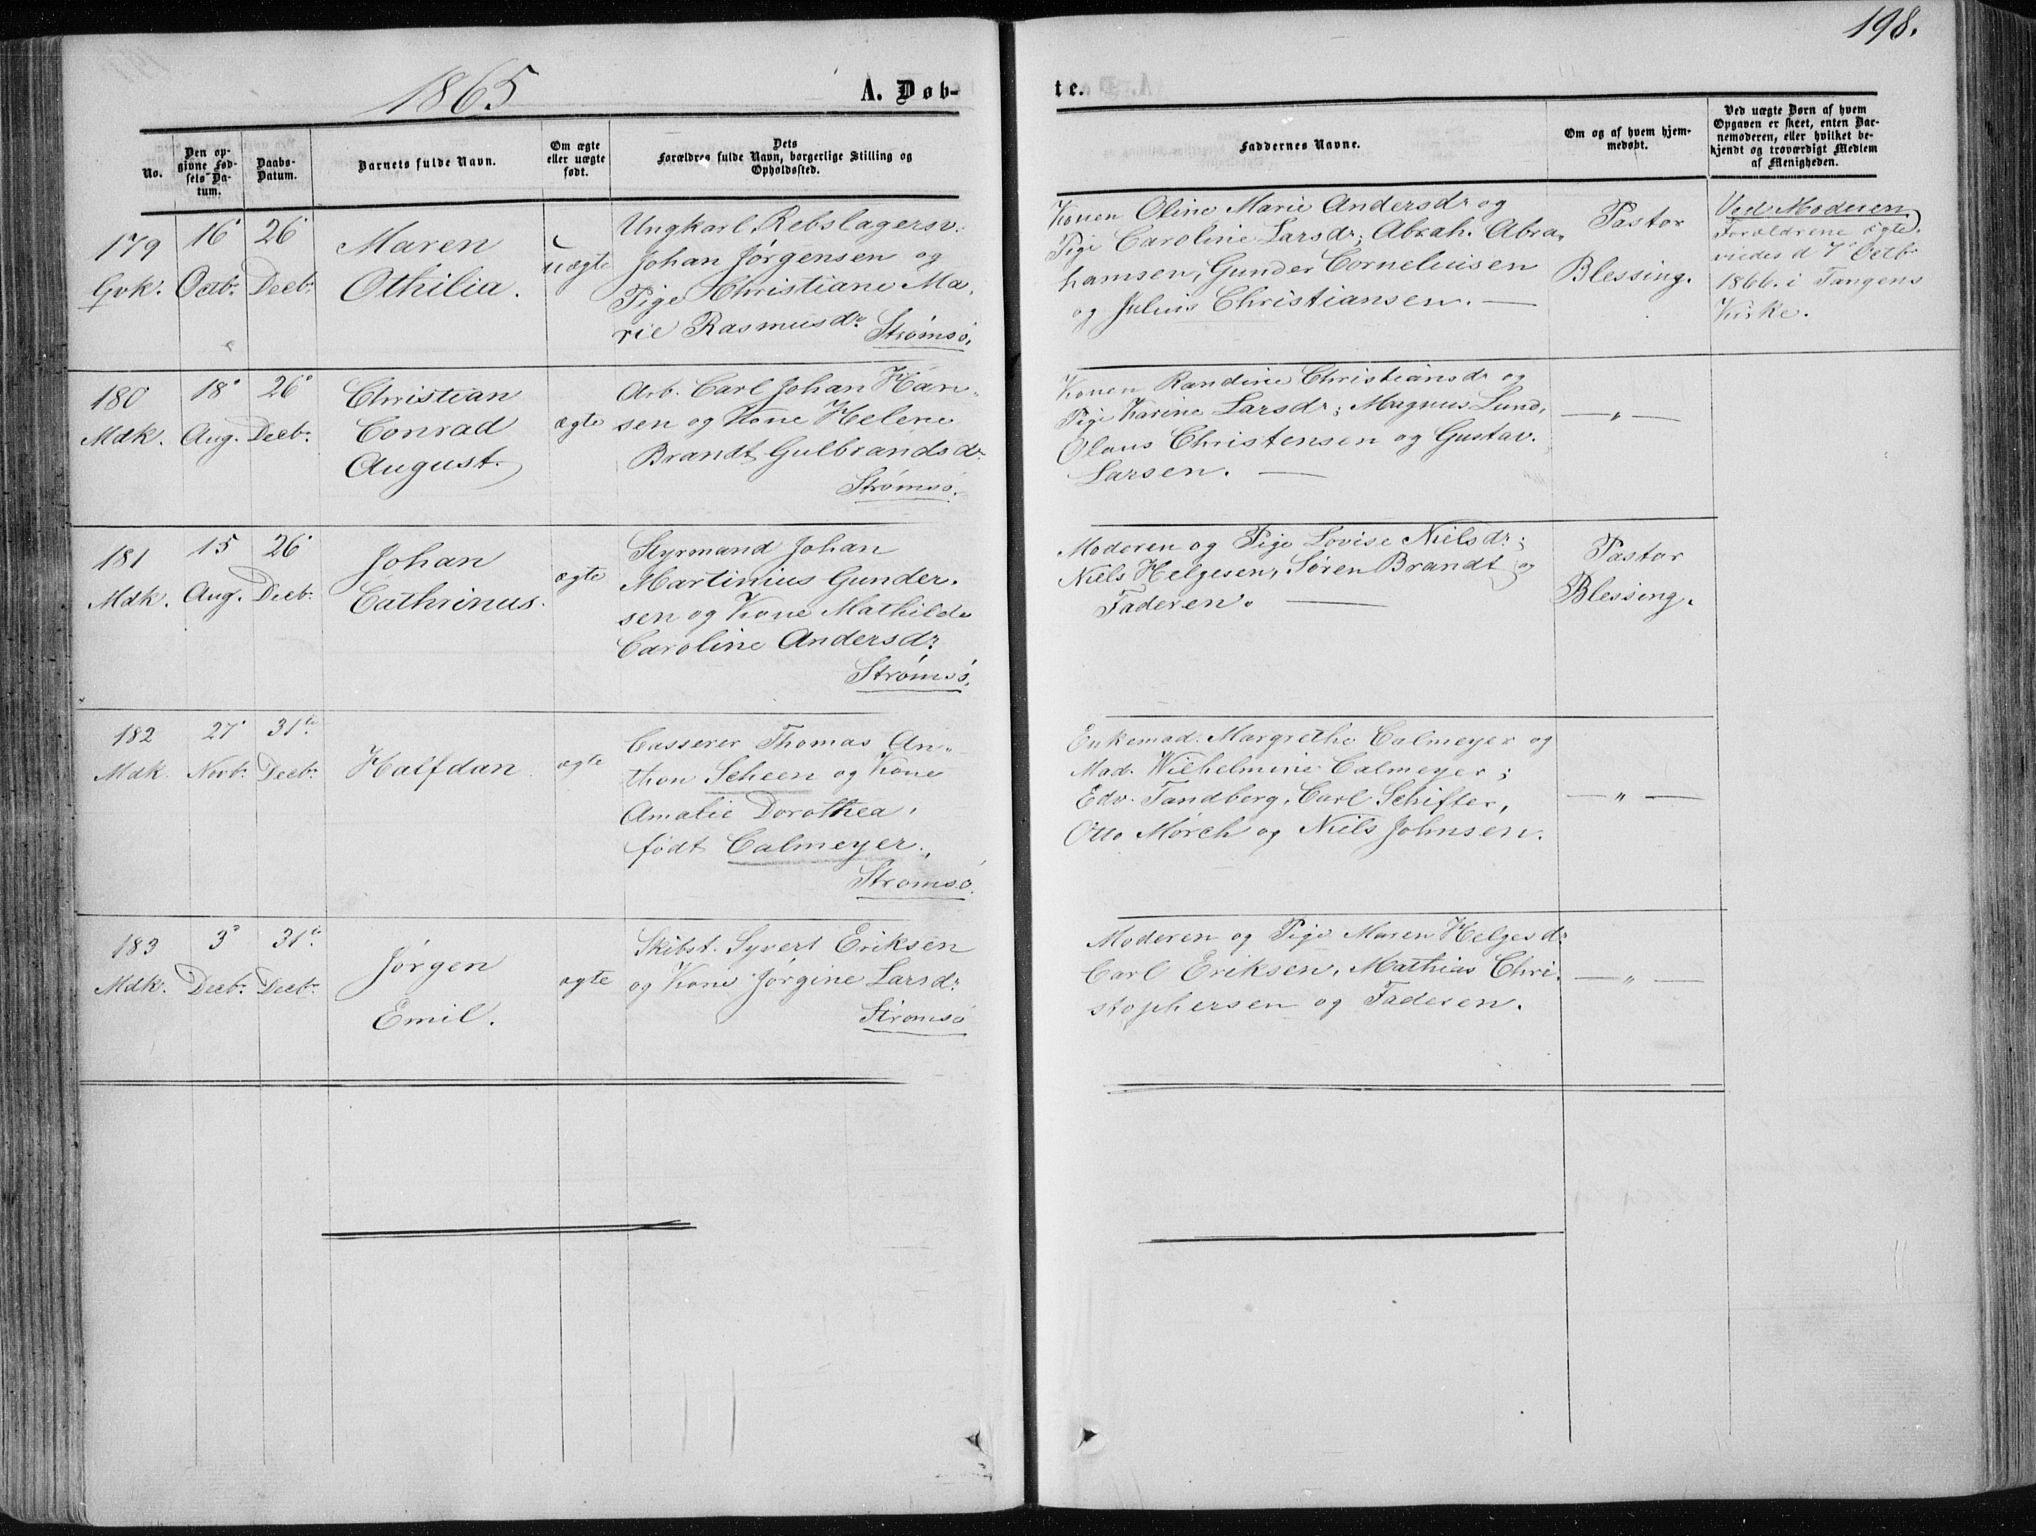 198.
1865
A. Døb-
te.
No.
Den op-
givne Fød-
sels Da-
tum.
Daabs-
Datum.
Barnets fulde Navn.
Om ægte
eller uægte
født.
Dets
Forældres fulde Navn, borgerlige Stilling og
Opholdssted.
Faddernes Navne.
Om og af hvem hjem-
medøbt.
Ved uægte Børn af hvem
Opgaven er skeet, enten Bar-
nemoderen, eller hvilket be-
kjendt og troværdigt Medlem
af Menigheden.
179
Gvk.
16
Octbr.
26
Decbr.
Maren
Othilia.
uægte
Ungkarl, Rebslagersv.
Johan Jørgensen og
Pige Christiane Ma-
rie Rasmusdr
Strømsø.
Konen Oline Marie Andersdr og
Pige Caroline Larsdr; Abrah. Abra-
hamsen, Gunder Corneliusen
og Julius Christiansen. —
Pastor
Blessing.
Ved Moderen
Forældrene ægte-
viedes d 7 Octbr
1866. i Tangens
Kirke.
180
Mdk.
18
Aug.
26
Decbr.
Christian
Conrad
August.
ægte
Arb. Carl Johan Han-
sen og Kone Helene
Brandt Gulbrandsdr
Strømsø.
Konen Randine Christiansdr og
Pige Karine Larsdr; Magnus Lund,
Olaus Christensen og Gustav
Larsen. —
— „ —
181
Mdk.
15
Aug.
26
Decbr.
Johan
Cathrinus.
ægte
Styrmand Johan
Martinius Gunder-
sen og Kone Mathilde
Caroline Andersdr
Strømsø.
Moderen og Pige Lovise Nielsdr;
Niels Helgesen, Søren Brandt og
Faderen. —
Pastor
Blessing.
182
Mdk.
27
Novbr.
31te
Decbr.
Halfdan
ægte
Casserer Thomas An-
thon Scheen og Kone
Amalie Dorothea,
født Calmeyer.
Strømsø.
Enkemad. Margrethe Calmeyer og
Mad. Wilhelmine Calmeyer;
Edv. Tandberg, Carl Schifter,
Otto Mørch og Niels Johnsen.
— „ —
183
Mdk.
3
Decbr.
31te
Decbr.
Jørgen
Emil.
ægte
Skibst. Syvert Eriksen
og Kone Jørgine Larsdr.
Strømsø
Moderen og Pige Maren Helgesdr
Carl Eriksen, Mathias Chri-
stophersen og Faderen.
— „ —